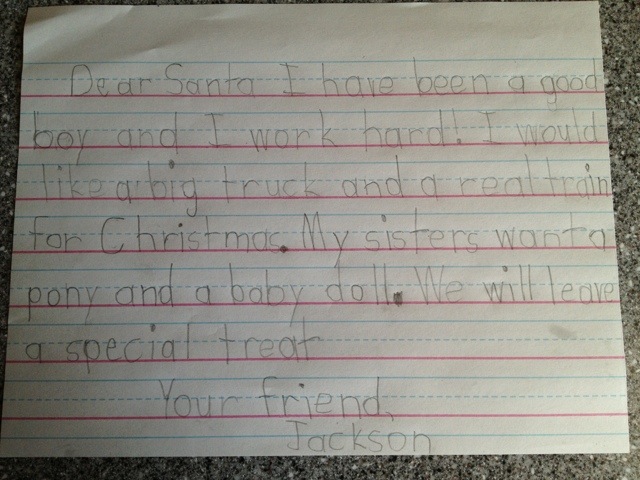 Dear Santa I have been a good
boy and I work hard! I would
like a big truck and a real train
for Christmas. My sisters want a
pony and a baby doll. We will leave
a special treat
Your friend,
Jackson